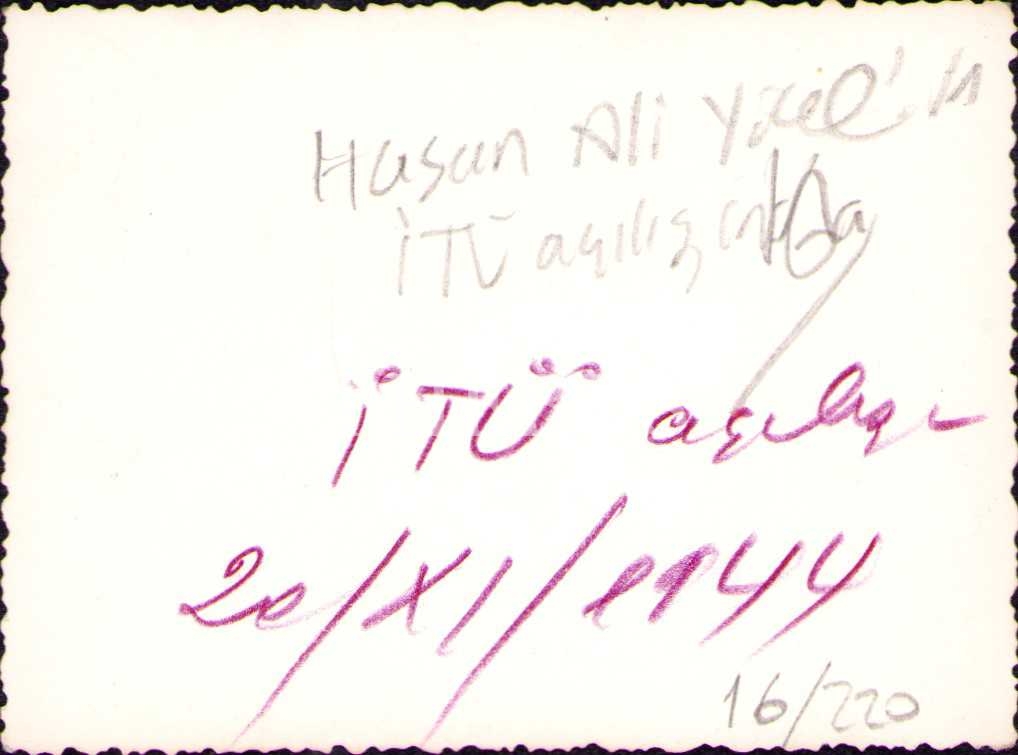 Hasan Ali Yücel'in
İTÜ açılışında
İTÜ açılışı
20/XI/1944
16/220